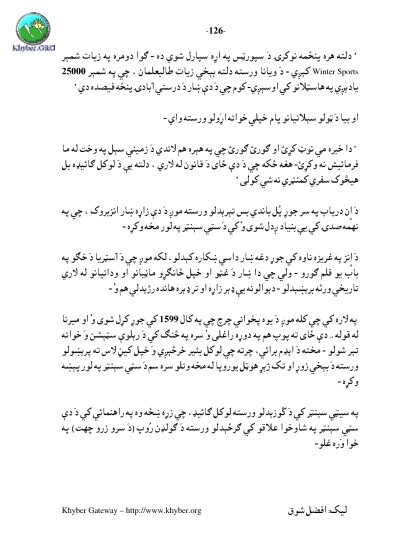 Khyber.ORG
-126-
" دلته هره پنځمه نوکرۍ دَ سپورټس په اړه سپارل شوي ده - ګوا دومره په زیات شمېر
Winter Sports کېږي - دَ ویانا ورسته دلته ببخي زیات طالبعلمان ، چي په شمېر 25000
یادېږي په هاسټلانو کي اوسېږي- کوم چي دَ دې ښار دَ درستي آبادۍ پنځه فیصده دي "
او بیا دَ ټولو سېلانیانو پام خپلي خوا ته اړولو ورسته واي -
" دا خبره مي نوټ کړئ او ګورئ ګورئ چي په هېره هم لاندي دَ زمیني سېل په وخت له ما
فرمائیش نه وکړئ- هغه ځکه چي دَ دې ځای دَ قانون له لاري ، دلته بې دَ لوکل ګائیډه بل
هیڅوک سفري کمنټري نه شي کولی "
دَ اِن دریاب په سر جوړ پُل باندي بس تېرېدلو ورسته موږ دَ دې زاړه ښار انزبروک ، چي په
نهمه صدۍ کي یې بنیاد ږدل شوی وُ کي دَ سټي سېنټر په لور مخه وکړه -
دَ انز په غریزه ناوه کي جوړ دغه ښار داسي ښکاره کېدلو ، لکه موږ چي دَ آسټریا دَ څګو په
باب یو فلم ګورو - ولي چي دا ښار دَ غټو او خپل ځانګړو ماڼیانو او ودانیانو له لاري
تاریخي ورته برېښېدلو - دېوالونه یې ډېر زاړه او تر ډېره هانده رژېدلي هم وُ -
په لاره کي چي کله موږ دَ یوه پخواني چرچ چي په کال 1599 کي جوړ کړل شوی وُ او میرتا
له قوله .. دې ځای ته پوپ هم په دوره راغلی وُ سره په څنګ کي دَ رېلوې سټېشن وَ خوا ته
تېر شولو - مخته دَ اېډم برائي، چرته چي لوکل بئیر خرڅېږي وَ خپل کیڼ لاس ته پرېښولو
ورسته دَ ببخي زوړ او تک ژېړ هوټل یوروپا له مخه وتلو سره سم دَ سټي سېنټر په لور پېښه
وکړه -
په سیټي سېنټر کي دَ کوزېدلو ورسته لوکل ګائیډ ، چي زړه ښځه وه په راهنمائي کي دَ دې
سټي سېنټر په شاوخوا علاقو کي ګرځېدلو ورسته دَ ګولډن رُوپ (دَ سرو زرو چهت) په
خوا وَرغلو -
Khyber Gateway – http://www.khyber.org
لیک: افضل شوق